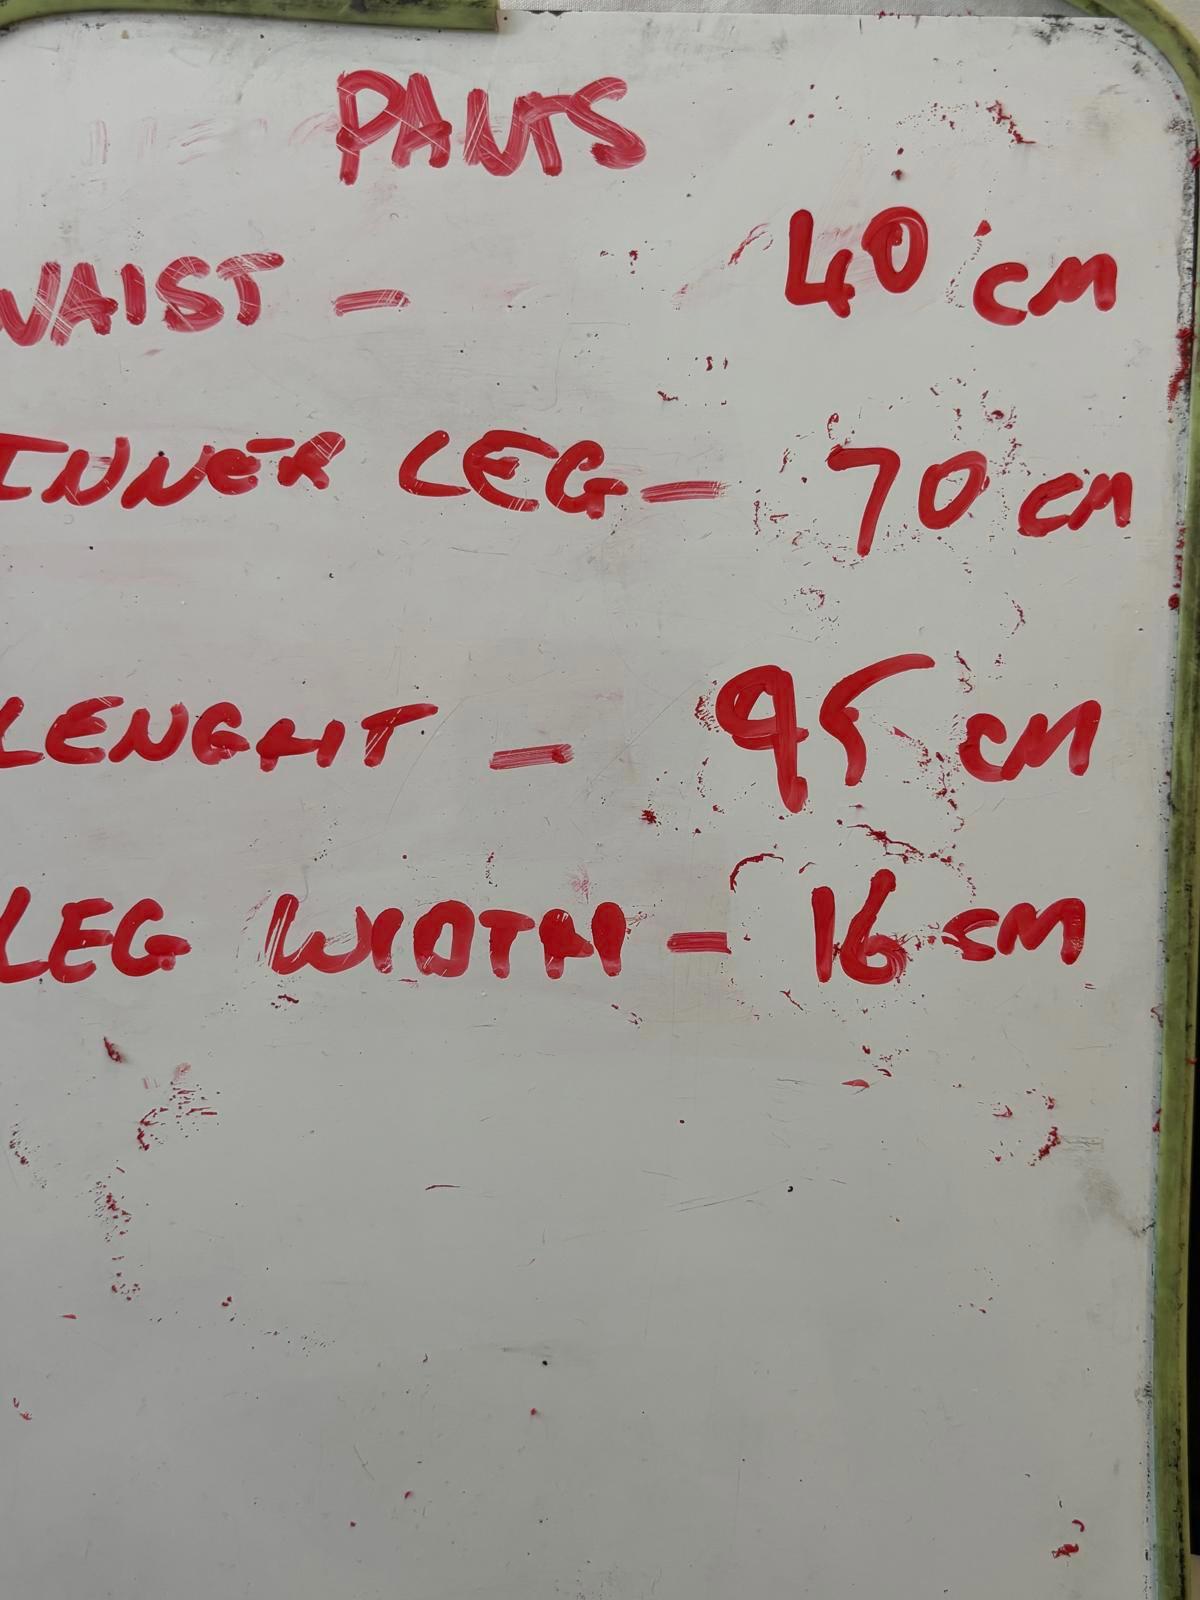 PANTS
WAIST - 40 CM
INNER LEG - 70 CM
LENGHT - 95 CM
LEG WIDTH - 16 CM